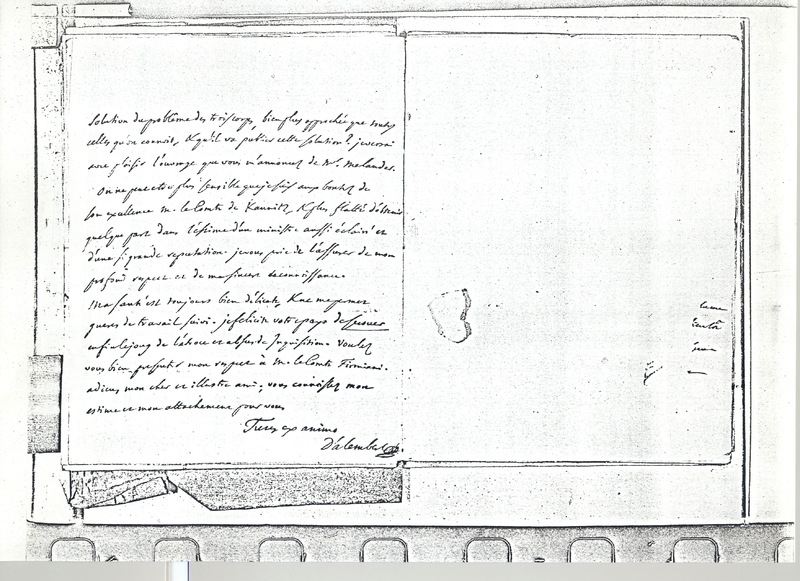 Solution du problême des trois corps, bien plus approchée que toutes
celles qu'on connoit, & qu'il va publier cette solution? je verrai
avec plaisir l'ouvrage que vous m'annoncez de Mr. Melander.
On ne peut etre plus sensible que je suis aux bontés de
son excellence m. le Comte de Kaunitz, & plus flatté d'obtenir
quelque part dans l'estime d'un ministre aussi éclairé et
d'une si grande reputation. je vous prie de l'assurer de mon
profond respect et de ma sincere reconnoissance.
Ma santé est toujours bien délicate, & ne me permet
gueres de travail suivi. je felicite votre pays de secouer
enfin le joug de l'atroce et absurde Inquisition. Voulez
vous bien presenter mon respect à M. le Comte Firmiani.
adieu, mon cher et illustre ami; vous connoissez mon
estime et mon attachement pour vous
Tuus ex animo
D'alembert